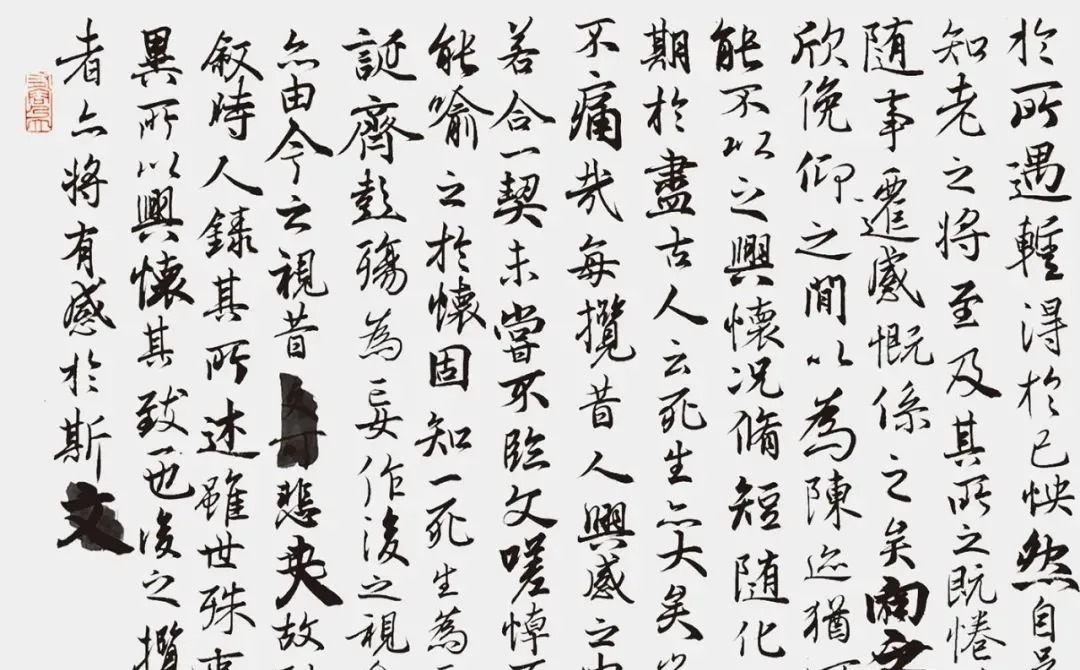 於所遇暫得於己怏然自
知老之将至及其所之既惓
隨事遷感慨係之矣向之
欣俛仰之間以為陳迹猶
能不以之興懷况脩短隨化
期於盡古人云死生亦大矣
不痛哉每攬昔人興感之
若合一契未嘗不臨文嗟悼
能喻之於懷固知一死生為
誕齊彭殤為妄作後之視
亦由今之視昔悲夫故
叙時人錄其所述雖世殊事
異所以興懷其致一也後之攬
者亦将有感於斯文